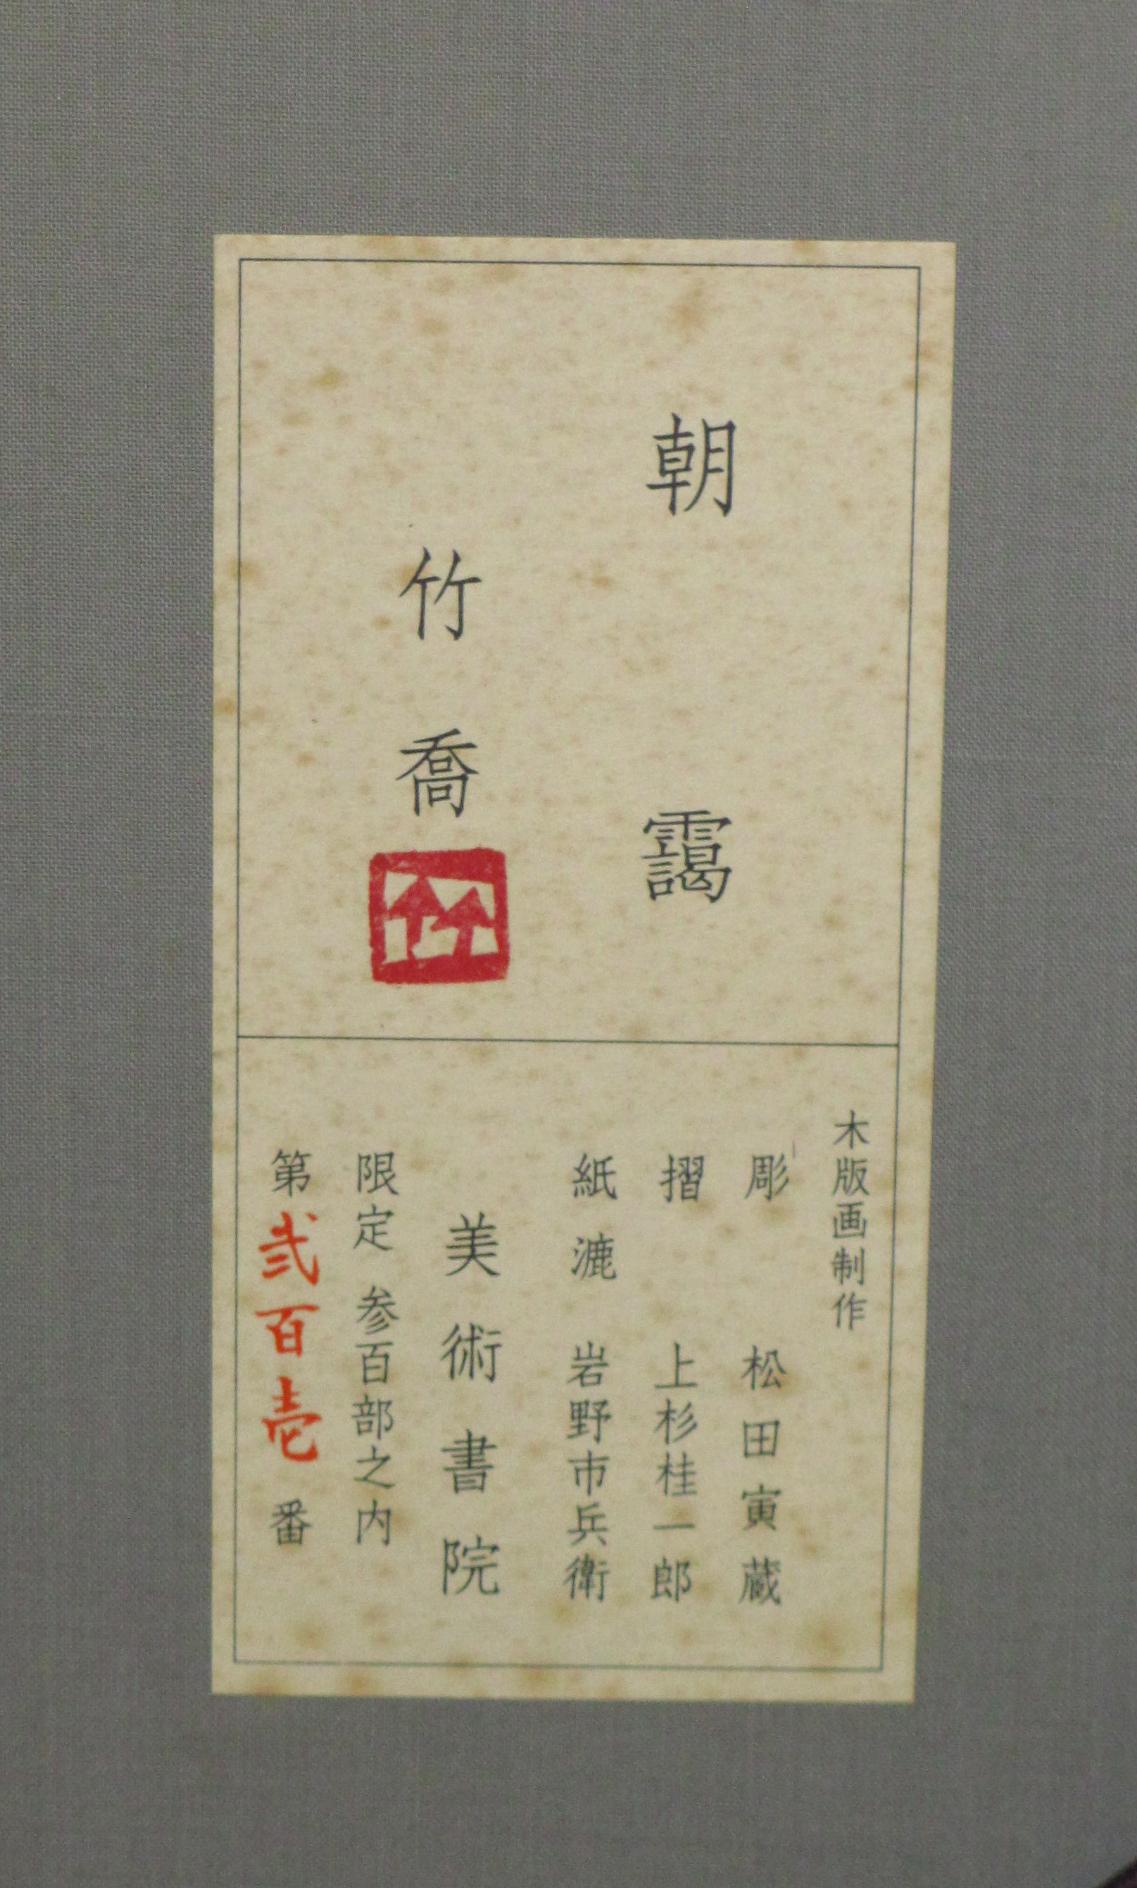 朝靄
竹喬
竹
木版画制作
彫 松田寅蔵
摺 上杉桂一郎
紙漉 岩野市兵衛
美術書院
限定 参百部之内
第弐百壱番